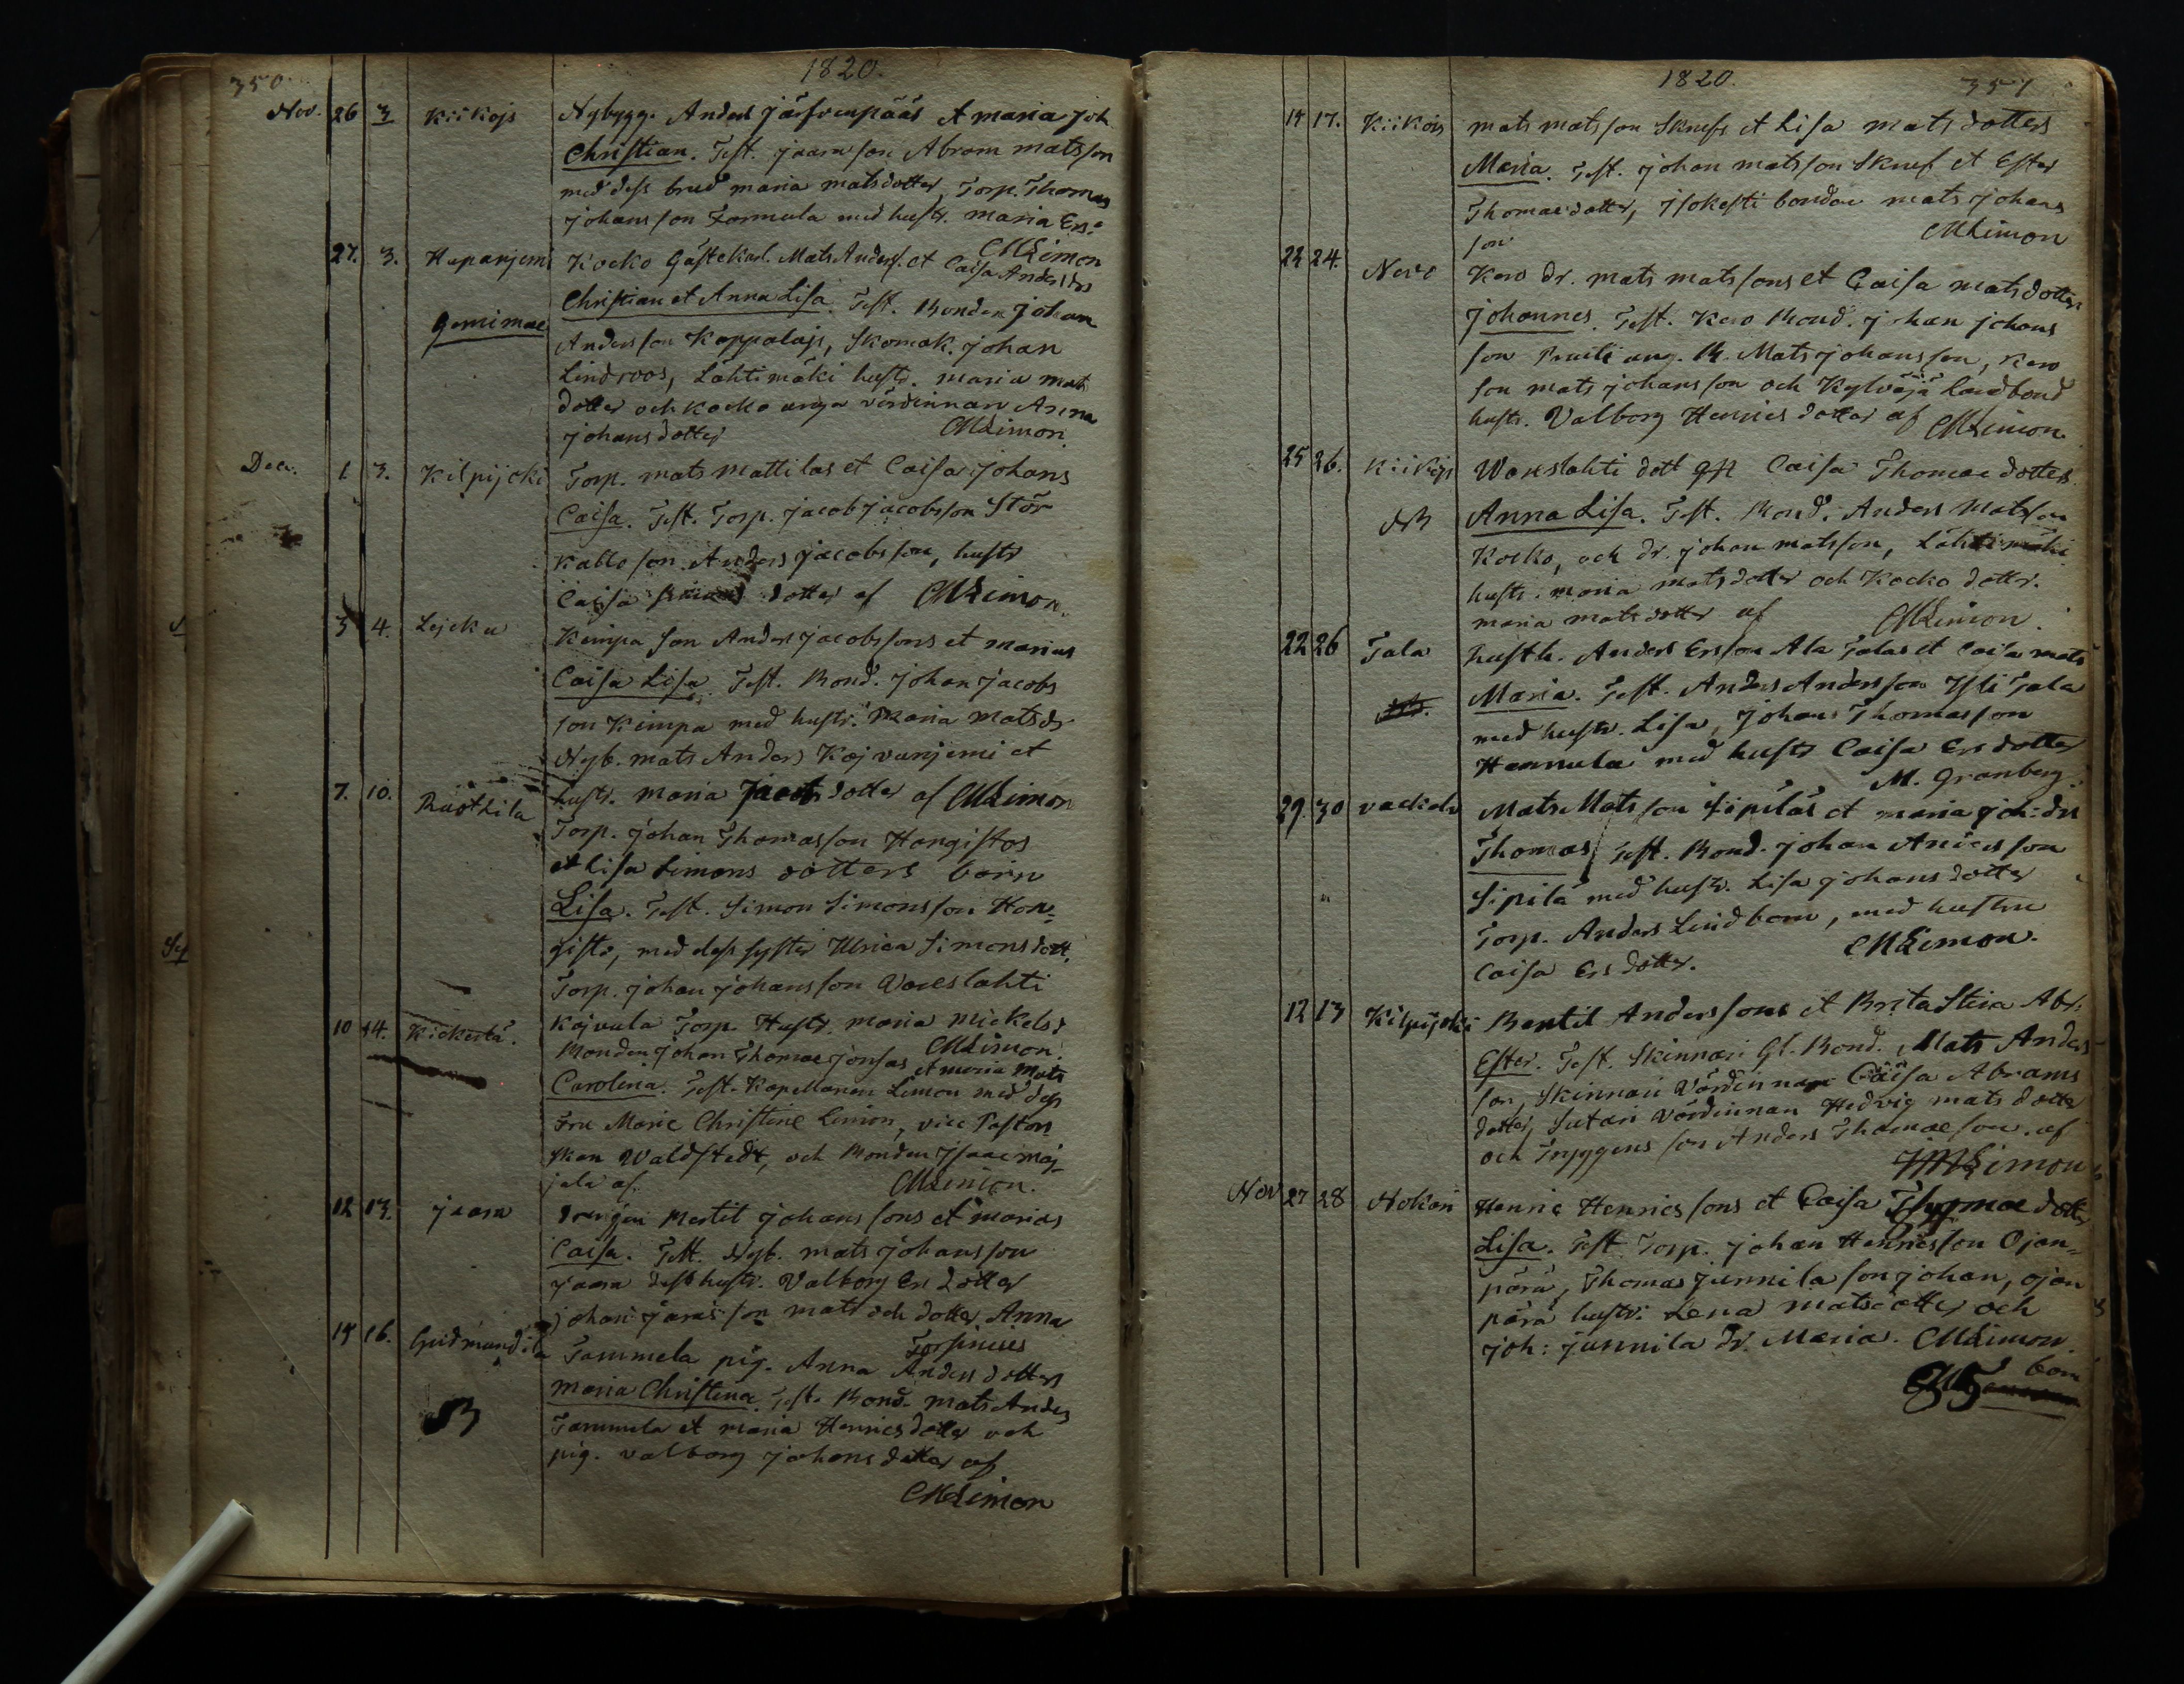 350. 1820.
Nov. 26 3 Kiikojs Nybygg. Anders järfvenpääs et maria joh
Christian. Test. jaara son Abram matsson
med dess brud maria matsdotter, Torp. Thomas
johansson Tormula med hustr. maria Ers.
CMLimon
27. 3. Haparjemi Kocko Gästekarl. Mats Anders. et Caisa Anders drs
Christian et Anna Lisa. Test. Bonden johan
gemimae Andersson Koppalajs, Skomak. johan
Lindroos, Lähtimäki hustr. maria mats
dotter och Kocko unga värdinnan Anna
johansdotter CMLimon.
Decr. 1 3. Kilpijcki Torp. mats mattilas et Caisa johans
Caisa. Test. Torp. jacob jacobsson Stör
Kallo son Anders jacobsson, hustr
Caisa dotter af CMLimon.
3 4. Lejcku Kimpa son Anders jacobssons et marias
Caisa Lisa. Test. Bond. johan jacobs
son Kimpa med hustr. maria mats dr
Nyb. mats Anders Kojvunjemi et
hustr. maria jacobs dotter af CMLimon
7. 10. Ruottila Torp. johan Thomasson Hangistos
et Lisa Simons dotters barn
Lisa. Test. Simon Simonsson Han=
gisto, med dess syster Ulrica Simonsdott.
Torp. johan johansson Vareslahti
Kojvula Torp. Hustr. maria Mickelsd
CMLimon.
10 14. Kickerlä. Bonden johan Thomae jonsas et maria Mats
Carolina. Test. Kapellanen Limon med dess
Fru Marie Christine Limon, vice Pastors
skan Waldstedt, och Bonden jsaac maj
jala af. CMLimon.
12 13. jaara drengen Bertil johanssons et marias
Caisa. Test. Nyb. mats johansson
jaara dess hustr. Valborg Ers dotter
johan jaras son mats och dotter Anna
14 16. Gudmundila Tammela pig. Anna Anders dotters
maria Christina. Test. Bond. mats Anders
Tammela et maria Henricsdotter och
pig. valborg johansdotter af
CMLimon
1820. 351
14 17. Kiikois mats matsson Skrufs et Lisa mats dotters
Maria. Test. johan matsson Skruf et Ester
Thomaedotter, jsokesti bonden mats johans
son CMLimon
22 24. Noro Kero dr. mats matssons et Caisa matsdotters
johannes. Test. Kero Bond. johan johans
son Pruuti ung. B. Mats johansson, Kero
son mats johansson och Kylväjä landbond
hustr. Valborg Henricsdotter af CMLimon.
25 26. Kiikojs Wareslahti dott Caisa Thomae dotters
Anna Lisa. Test. Bond. Anders Matsson
Kocko, och dr. johan matsson, Lähtimäki
hustr. maria mats dotter och Kocko dottr.
maria mats dotter af CMLimon.
22 26 Tala hustb. Anders Ersson Ala Talas et Caisa mats
Maria. Test. Anders Andersson Yli Tala
med hustr. Lisa, johans Thomasson
Hannula med hustr Caisa Ersdotter
M. Granberg.
29. 30 Mats Matsson Sipiläs et maria joh: drs
Thomas. Test. Bond. johan Andersson
Sipilä med hustr. Lisa johansdotter
Torp. Anders Lindbom, med hustru
Caisa Ersdotter. CMLimon.
12 13 Kilpijoki Bertil Anderssons et Brita Stina Abr:
Ester. Test. Skinnari Gl. Bond. Mats Anders
son, Skinnari Värdinnan Caisa Abrams
dotter, Sutari Värdinnan Hedvig mats dotter
och Tryggens son Anders Thomaeson. af
CMLimon
Nov 27 28 Nokari Henric Henricssons et Caisa Thomae dotter
Lisa. Test. Torp. johan Henricsson Ojan=
pärä, Thomas junnila son johan, ojan
pärä hustr. Lena matsdotter och
joh: junnila dr. Maria. CMLimon.